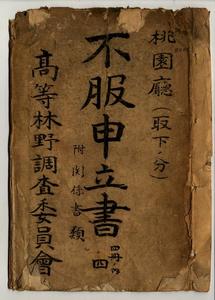 桃園廳(取下ノ分)
不服申立書
附関係書類
四冊ノ内
四
高等林野調査委員會